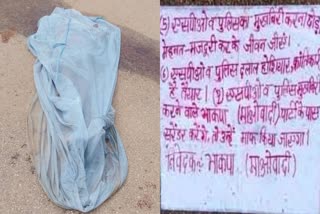 5) एसपीओ व पुलिस का मुखबिरी करना छोड़
मेहनत-मजदूरी कर के जीवन जीएँ।
६) एसपीओ व पुलिस दलाल होशियार, क्रांतिकारी
हैं तैयार। 7) एसपीओ व पुलिस मुखबिरी
करने वाले भाकपा (माओवादी) पार्टी के पास
सरेंडर करेंगे, तो उन्हें माफ किया जाएगा।
निवेदक:- भाकपा (माओवादी)